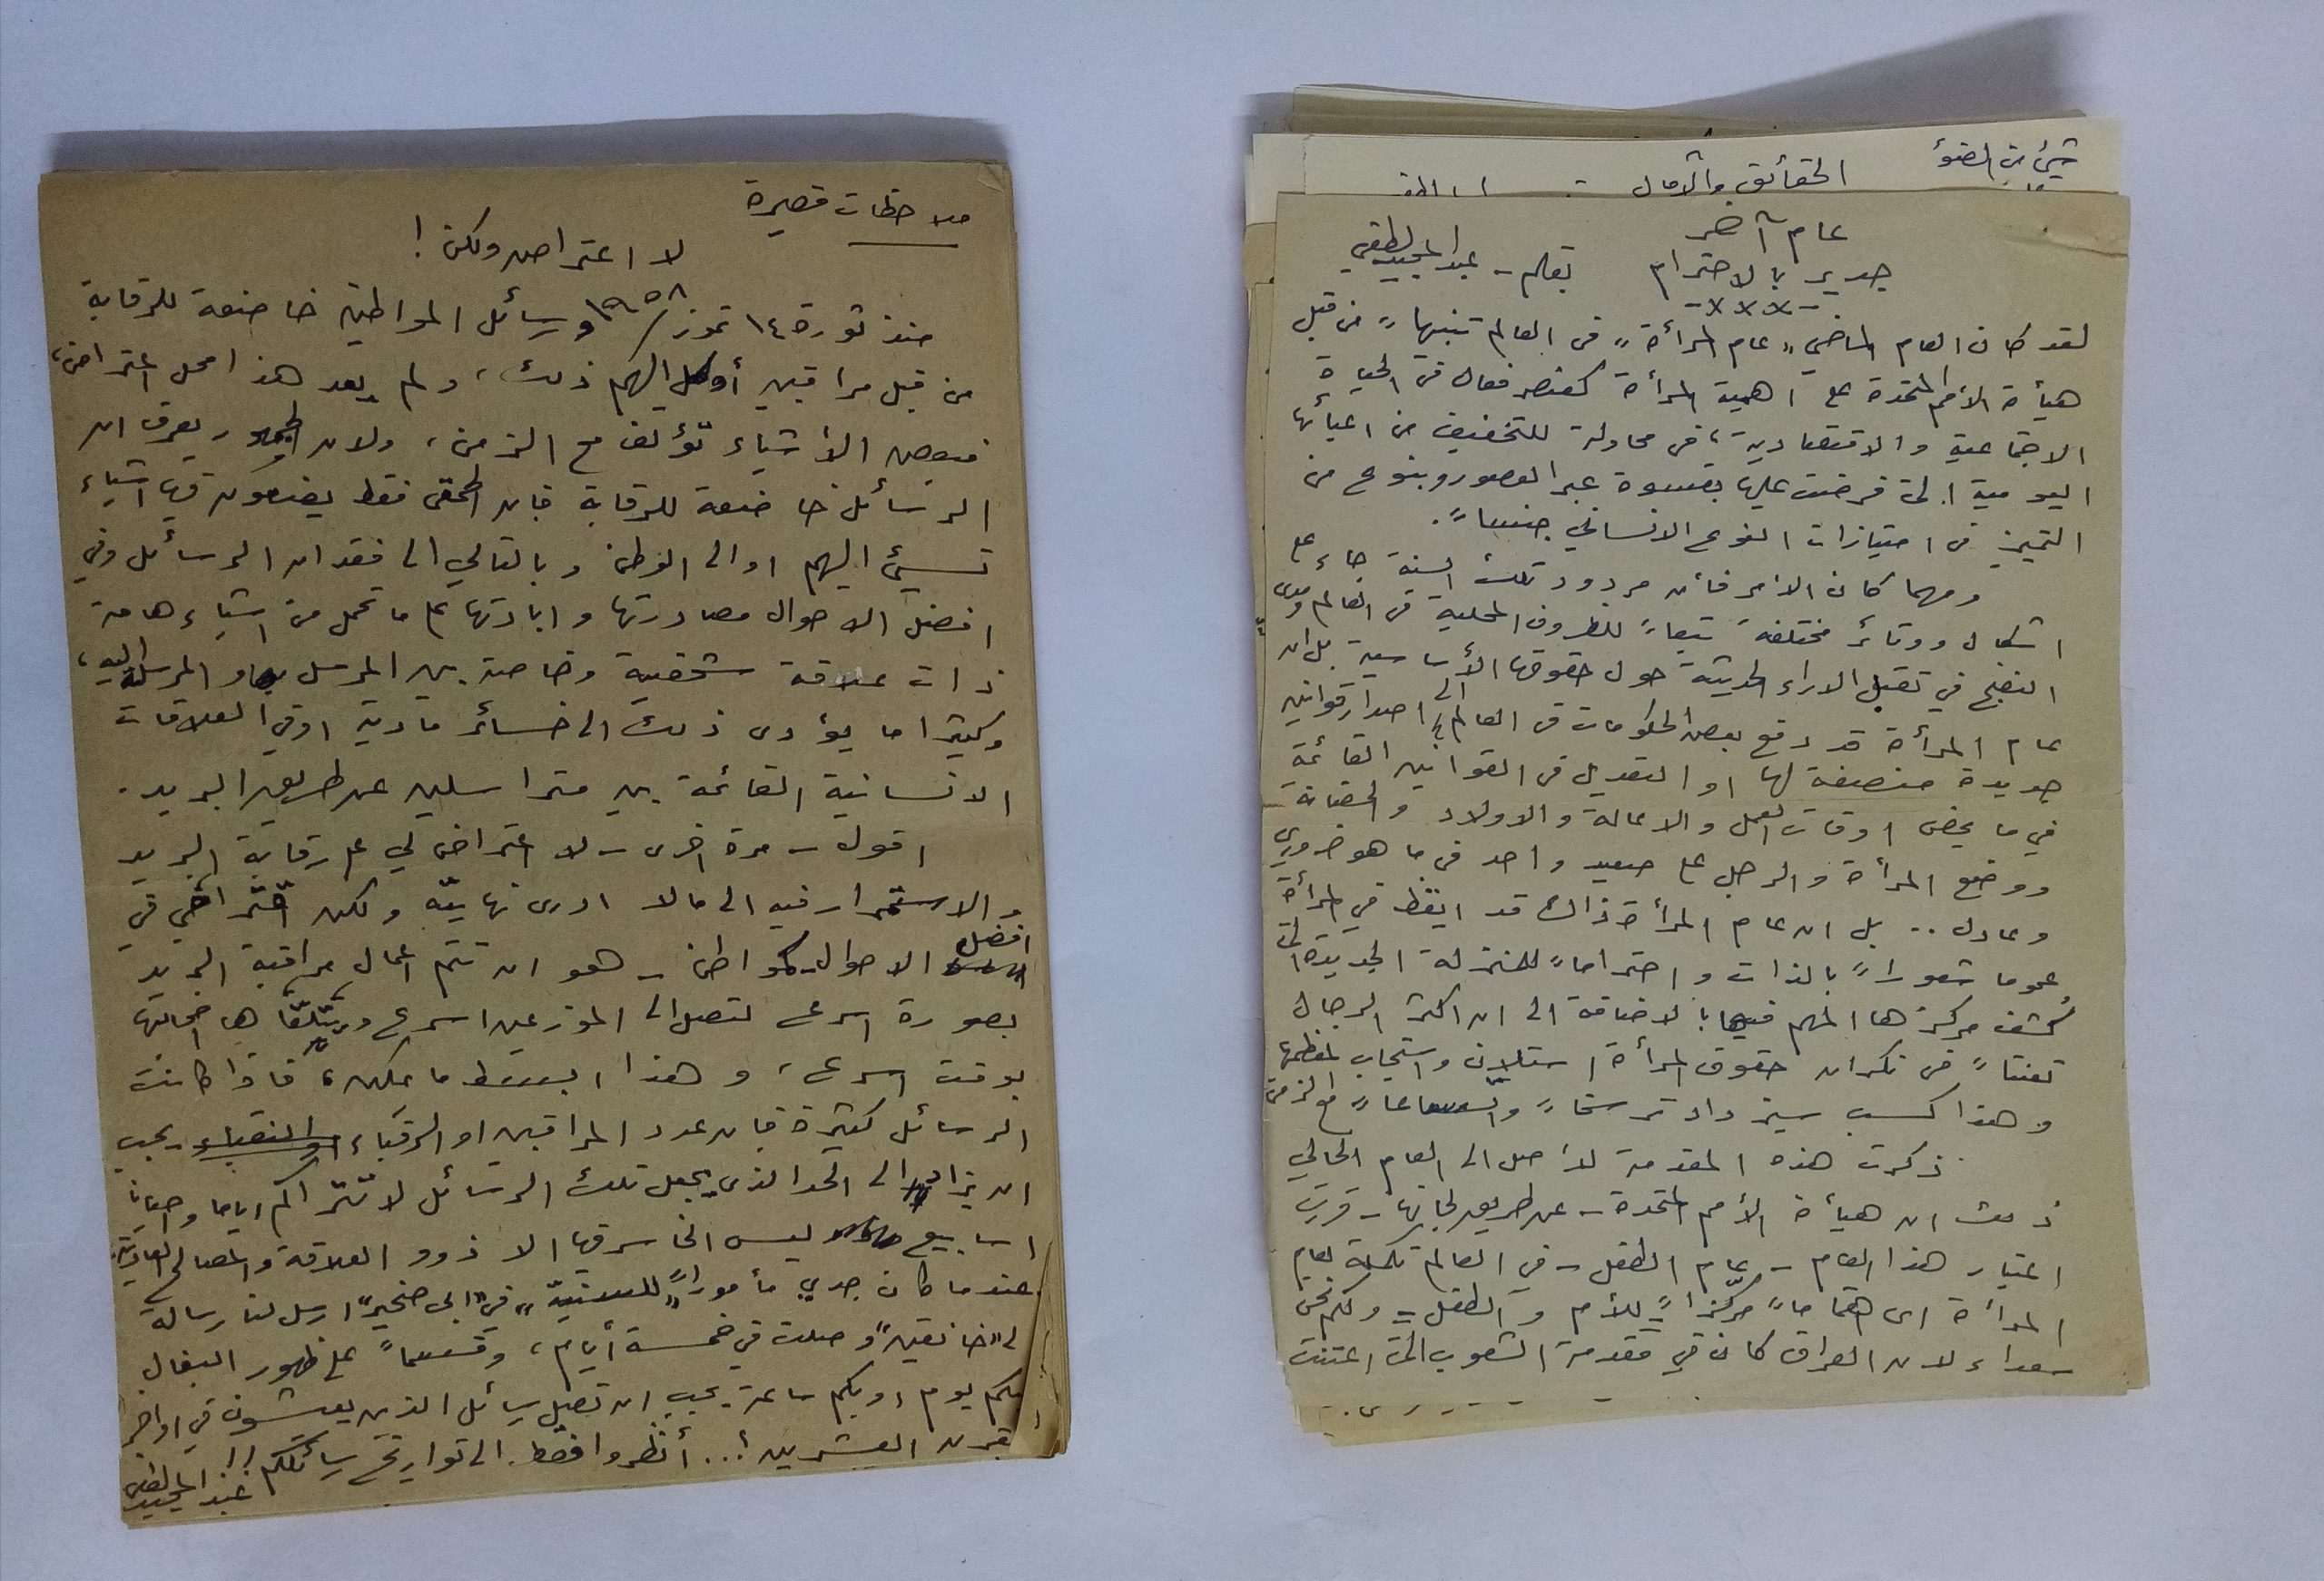 ملاحظات قصيرة
لا اعتراض ولكن !
منذ ثورة ١٤ تموز / ١٩٥٨ ورسائل المواطنين خاضعة للرقابة
من قبل مراقبين أوكل اليهم ذلك، ولم يعد هذا محل اعتراض،
فبعض الأشياء تؤلف مع الزمن، ولان الجمهور يعرف ان
الرسائل خاضعة للرقابة فان الحمقى فقط يضعون فيها اشياء
تسيئ اليهم او الى الوطن وبالتالي الى فقدان الرسائل وفي
افضل الاحوال مصادرتها وابادتها على ما تحمل من اشياء هامة
ذات علاقة شخصية وخاصة بين المرسل والمرسل اليه،
وكثيرا ما يؤدى ذلك الى خسائر مادية او في العلاقات
الانسانية القائمة بين متراسلين عن طريق البريد.
اقول - مرة اخرى - لا اعتراض لي على رقابة البريد
والاستمرار فيه الى مالا ادرى نهايته ولكن اقتراحي في
افضل الاحوال كمواطن - هو ان تتم اعمال مراقبة البريد
بصورة اسرع لتصل الى الموزعين اسرع ويتلقاها اصحابها
بوقت اسرع، وهذا ابسط ما يمكن، فاذا كانت
الرسائل كثيرة فان عدد المراقبين او الرقباء يجب
ان يزاد الى الحد الذى يجعل تلك الرسائل لا تتراكم اياما واحيانا
اسابيع ليس الخاسر فيها الا ذوو العلاقة والمصالح العادية.
عندما كان جدي مأموراً للسنية في "ابى صخير" ارسل لنا رسالة
لـ "خانقين" وصلت في خمسة أيام، وقسماً على ظهور البغال
فبكم يوم او بكم ساعة يجب ان تصل رسائل الذين يعيشون في اواخر
القرن العشرين ؟... أنظروا فقط الى تواريخ رسائلكم !!
عبد المجيد لطفي
شيئ من الضوء
الحقائق والآمال
عام آخر
جدير بالاحترام بقلم - عبد المجيد لطفي
- x x x -
لقد كان العام الماضي "عام المرأة" في العالم تنبيهاً من قبل
هيأة الأمم المتحدة على اهمية المرأة كعنصر فعال في الحياة
الاجتماعية والاقتصادية، في محاولة للتخفيف من اعبائها
اليومية التى فرضت عليها بقسوة عبر العصور وبنوع من
التميز في امتيازات النوع الانساني جنسياً.
ومهما كان الأمر فأن مردود تلك السنة جاء على
اشكال ووتائر مختلفة تبعاً للظروف المحلية في العالم ومدى
النضج في تقبل الاراء الحديثة حول حقوقها الأساسية بل ان
عام المرأة قد دفع بعض الحكومات في العالم الى اصدار قوانين
جديدة منصفة لها او التعديل في القوانين القائمة
في ما يخص اوقات العمل والاعالة والاولاد والحضانة
ووضع المرأة والرجل على صعيد واحد في ما هو ضروري
وعادل .. بل ان عام المرأة ذاك قد ايقظ في المرأة
عموما شعوراً بالذات واحتراماً للمنزلة الجديدة التى
كشف مركزها المهم فيها بالاضافة الى ان اكثر الرجال
تعنتاً في نكران حقوق المرأة استلان واستجاب لمعظمها
وهذا كسب سيزداد ترسخاً واتساعاً مع الزمن
ذكرت هذه المقدمة لأصل الى العام الحالي
ذلك ان هيأة الأمم المتحدة - عن طريق لجانها - قررت
اعتبار هذا العام - عام الطفل - في العالم تكملة لعام
المرأة اى اهتماماً مركزاً للأم والطفل - ولكم نحن
سعداء لان العراق كان في مقدمة الشعوب التى اعتنت